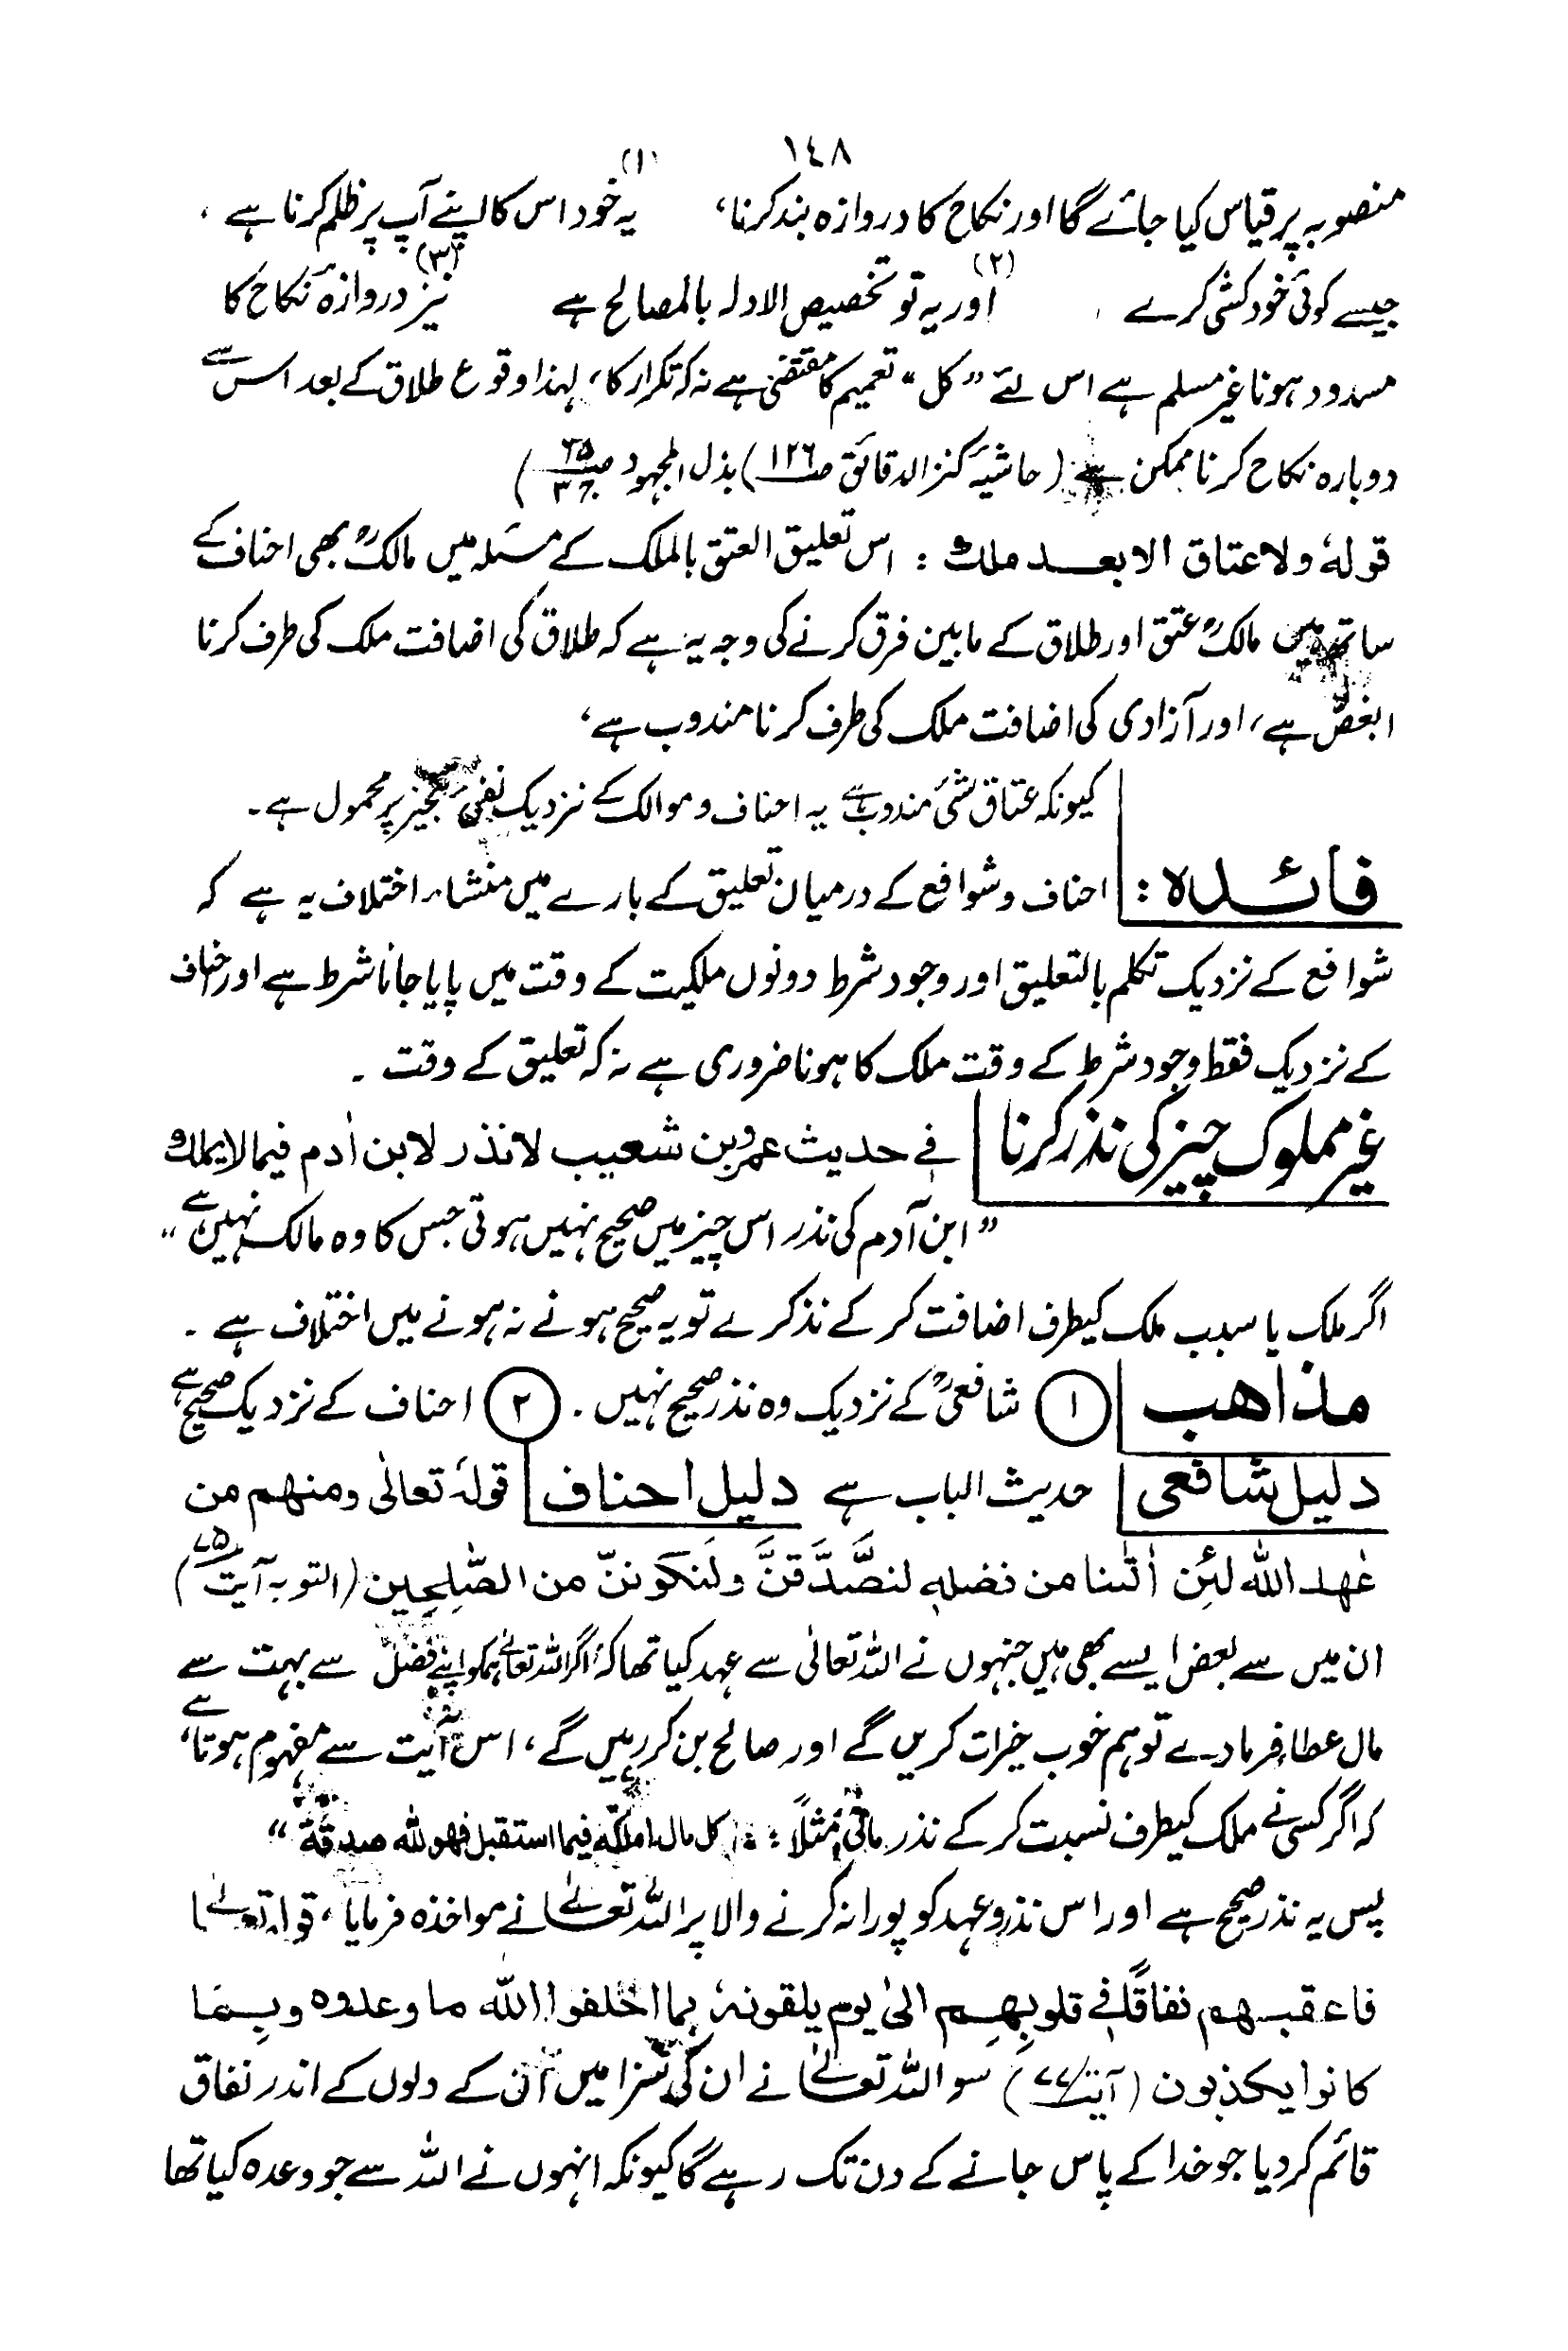 ١٤٨
منصوبہ پر قیاس کیا جائے گا اور نکاح کا دروازہ بند کرنا، (۱) یہ خود اس کا اپنے آپ پر ظلم کرنا ہے ،
جیسے کوئی خودکشی کرے ، (۲) اور یہ تو تخصیص الادلہ بالمصالح ہے (۳) نیز دروازۂ نکاح کا
مسدود ہونا غیر مسلم ہے اس لئے ”کل“ تعمیم کا مقتضی ہے نہ کہ تکرار کا، لہذا وقوع طلاق کے بعد اس سے
دوبارہ نکاح کرنا ممکن ہے (حاشیۂ کنز الدقائق صـ١٢٦) بذل المجہود
قولہٗ ولا عتاق الا بعد ملك : اس تعلیق العتق بالملک کے مسئلہ میں مالکؒ بھی احناف کے
ساتھ ہیں مالکؒ عتق اور طلاق کے مابین فرق کرنے کی وجہ یہ ہے کہ طلاق کی اضافت ملک کی طرف کرنا
ابغض ہے، اور آزادی کی اضافت ملک کی طرف کرنا مندوب ہے،
کیونکہ عتاق شئ مندوب ہے یہ احناف و موالک کے نزدیک نفی تنجیز پر محمول ہے۔
فائدہ : احناف و شوافع کے درمیان تعلیق کے بارے میں منشاء اختلاف یہ ہے کہ
شوافع کے نزدیک تکلم بالتعلیق اور وجود شرط دونوں ملکیت کے وقت میں پایا جانا شرط ہے اور احناف
کے نزدیک فقط وجود شرط کے وقت ملک کا ہونا ضروری ہے نہ کہ تعلیق کے وقت ۔
غیر مملوک چیز کی نذر کرنا فے حدیث عمرو بن شعیب لا نذر لابن اٰدم فیما لا یملك
”ابن آدم کی نذر اس چیز میں صحیح نہیں ہوتی جس کا وہ مالک نہیں ہے“
اگر ملک یا سبب ملک کیطرف اضافت کر کے نذ کرے تو یہ صحیح ہونے نہ ہونے میں اختلاف ہے ۔
مذاھب ① شافعیؒ کے نزدیک وہ نذر صحیح نہیں ۔ ② احناف کے نزدیک صحیح ہے
دلیل شافعی حدیث الباب ہے دلیل احناف قولہٗ تعالیٰ ومنھم من
عٰھد اللّٰہ لئِن اٰتٰىنا من فضلہٖ لنصَّدَّقنَّ ولَنکوننّ من الصّٰلِحِین (التوبہ آیت ۷۵)
ان میں سے بعض ایسے بھی ہیں جنہوں نے اللہ تعالیٰ سے عہد کیا تھا کہ اگر اللہ تعالیٰ ہمکو اپنے فضل سے بہت سے
مال عطا فرمادے تو ہم خوب خیرات کریں گے اور صالح بن کر رہیں گے، اس آیت سے مفہوم ہوتا ہے،
کہ اگر کسی نے ملک کیطرف نسبت کر کے نذر مانی مثلاً : کل مال املکہ فیما استقبل فھو للّٰہ صدقۃ“
پس یہ نذر صحیح ہے اور اس نذر و عہد کو پورا نہ کرنے والا پر اللہ تعالےٰ نے مواخذہ فرمایا، قولہ تعالےٰ
فاعقبھم نفاقًا فے قلوبِھِم الیٰ یوم یلقونہٗ بما اخلفوا اللّٰہ ما وعدوہ وبِمَا
کانوا یکذبون (آیت ۷۷) سو اللہ تعالےٰ نے ان کی سزا میں ان کے دلوں کے اندر نفاق
قائم کر دیا جو خدا کے پاس جانے کے دن تک رہے گا کیونکہ انہوں نے اللہ سے جو وعدہ کیا تھا